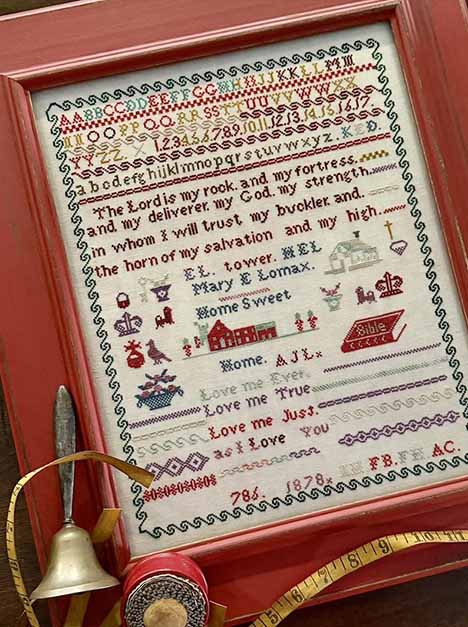 AABBCCDDEEFFGGHHIIJJKKLLMM
NNOOPPQQRRSSTTUUVVWWXX
YYZZ. 1.2.3.4.5.6.7.8.9.10.11.12.13.14.15.16.17.
abcdefghijklmnopqrstuvwxyz KED.
The Lord is my rook, and my fortress.
and my deliverer, my God, my strength.
in whom I will trust, my buckler, and.
the horn of my salvation and my high.
EL. tower. HEL
Mary E Lomax.
Home Sweet
Bible
Home. AJL
Love me Ever.
Love me True
Love me Just.
as I Love You
FB. FH AC.
786. 1878
1 2 3 4 5 6 7 8 9 10